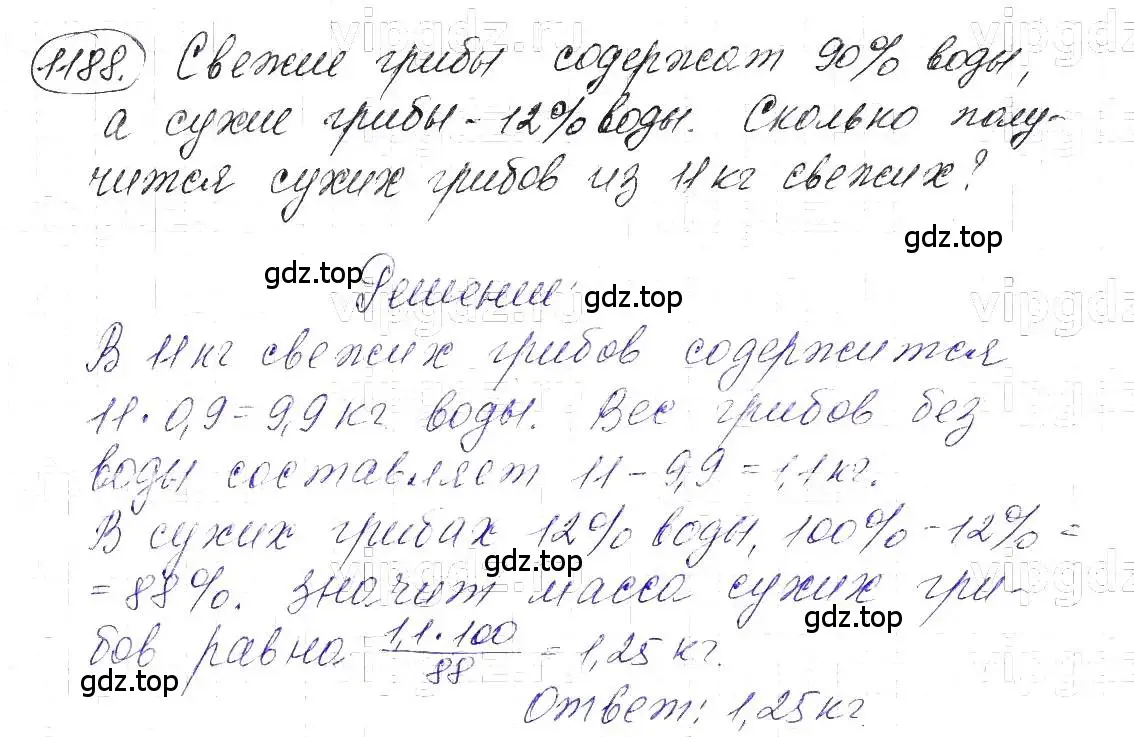 1188. Свежие грибы содержат 90% воды,
а сухие грибы - 12% воды. Сколько полу-
чится сухих грибов из 11 кг свежих?
gdz.top
gdz.top Решение: gdz.top
В 11 кг свежих грибов содержится
11 · 0,9 = 9,9 кг воды. Вес грибов без
воды составляет 11 - 9,9 = 1,1 кг.
В сухих грибах 12% воды, 100% - 12% =
gdz.top
= 88%. Значит масса сухих гри-
gdz.top
бов равна 1,1 · 100 / 88 = 1,25 кг.
gdz.top
Ответ: 1,25 кг
vipgdz.ru
vipgdz.ru
vipgdz.ru
vipgdz.ru